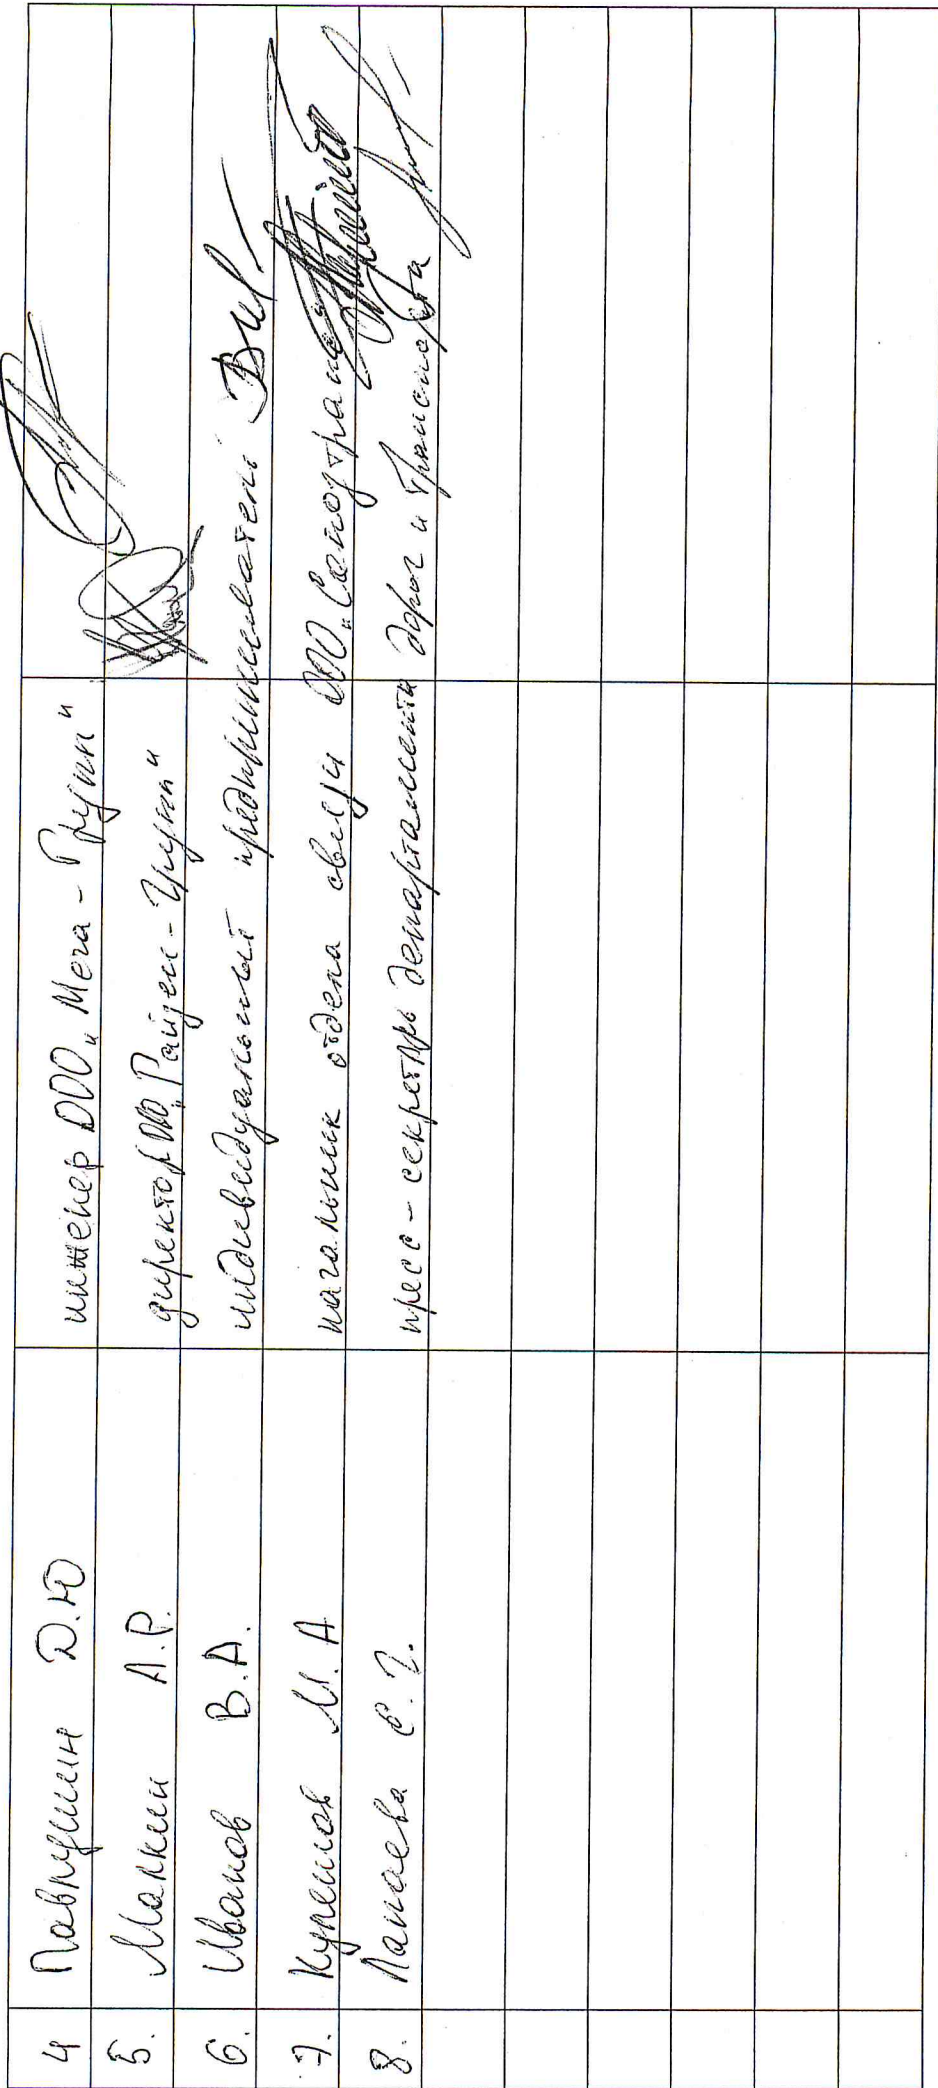 4 Павлушин Д.Ю инженер ООО „Мега - Групп"
5. Малкин А.Р. директор ООО „Райзен - Групп"
6. Иванов В.А. индивидуальный предприниматель
7. Кулешов М.А начальник отдела связи ООО
8. Лапаева Е.Г. пресс - секретарь департамента дорог и транспорта